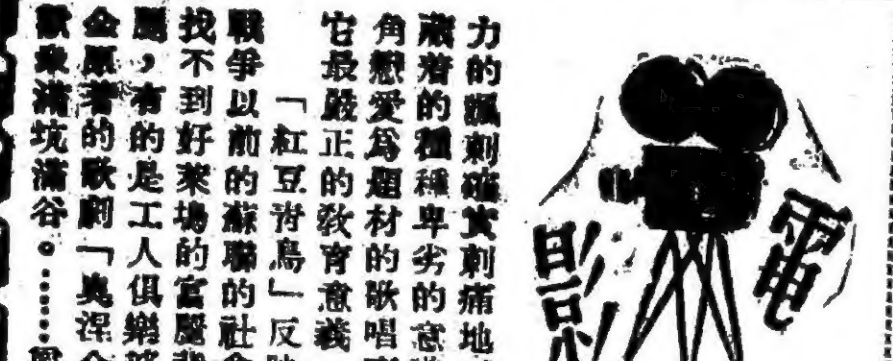 電影
力的諷刺確實刺痛地
藏着的種種卑劣的意
角戀愛爲題材的歌唱
它最嚴正的教育意義
「紅豆青鳥」反
戰爭以前的蘇聯的社會
找不到好萊塢的富麗
，有的是工人俱樂部
金原著的歌劇「奧涅金
滿坑滿谷。……